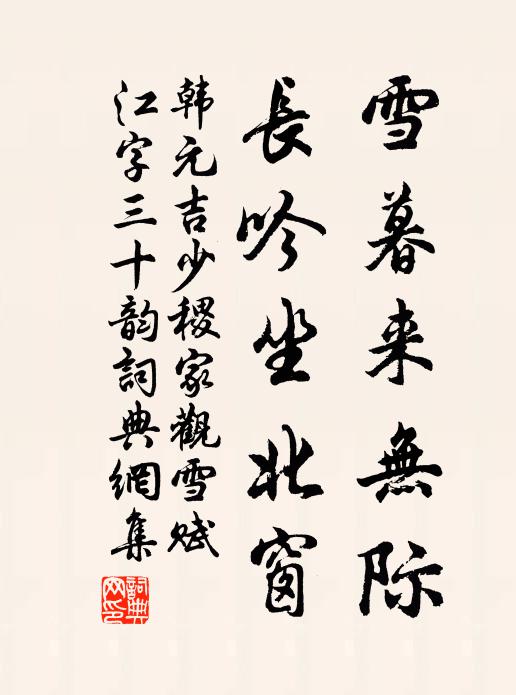 雪暮来無際
長吟坐北窗
韩元吉少稷家觀雪赋
江字三十韵詞典網集
詞典網印